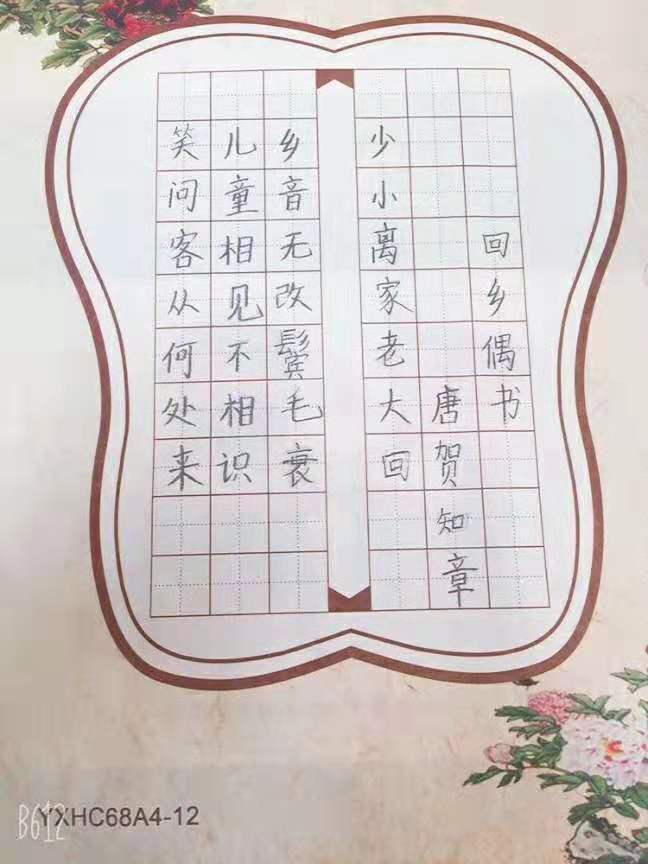 回乡偶书
唐贺知章
少小离家老大回
乡音无改鬓毛衰
儿童相见不相识
笑问客从何处来
YXHC68A4-12
B612